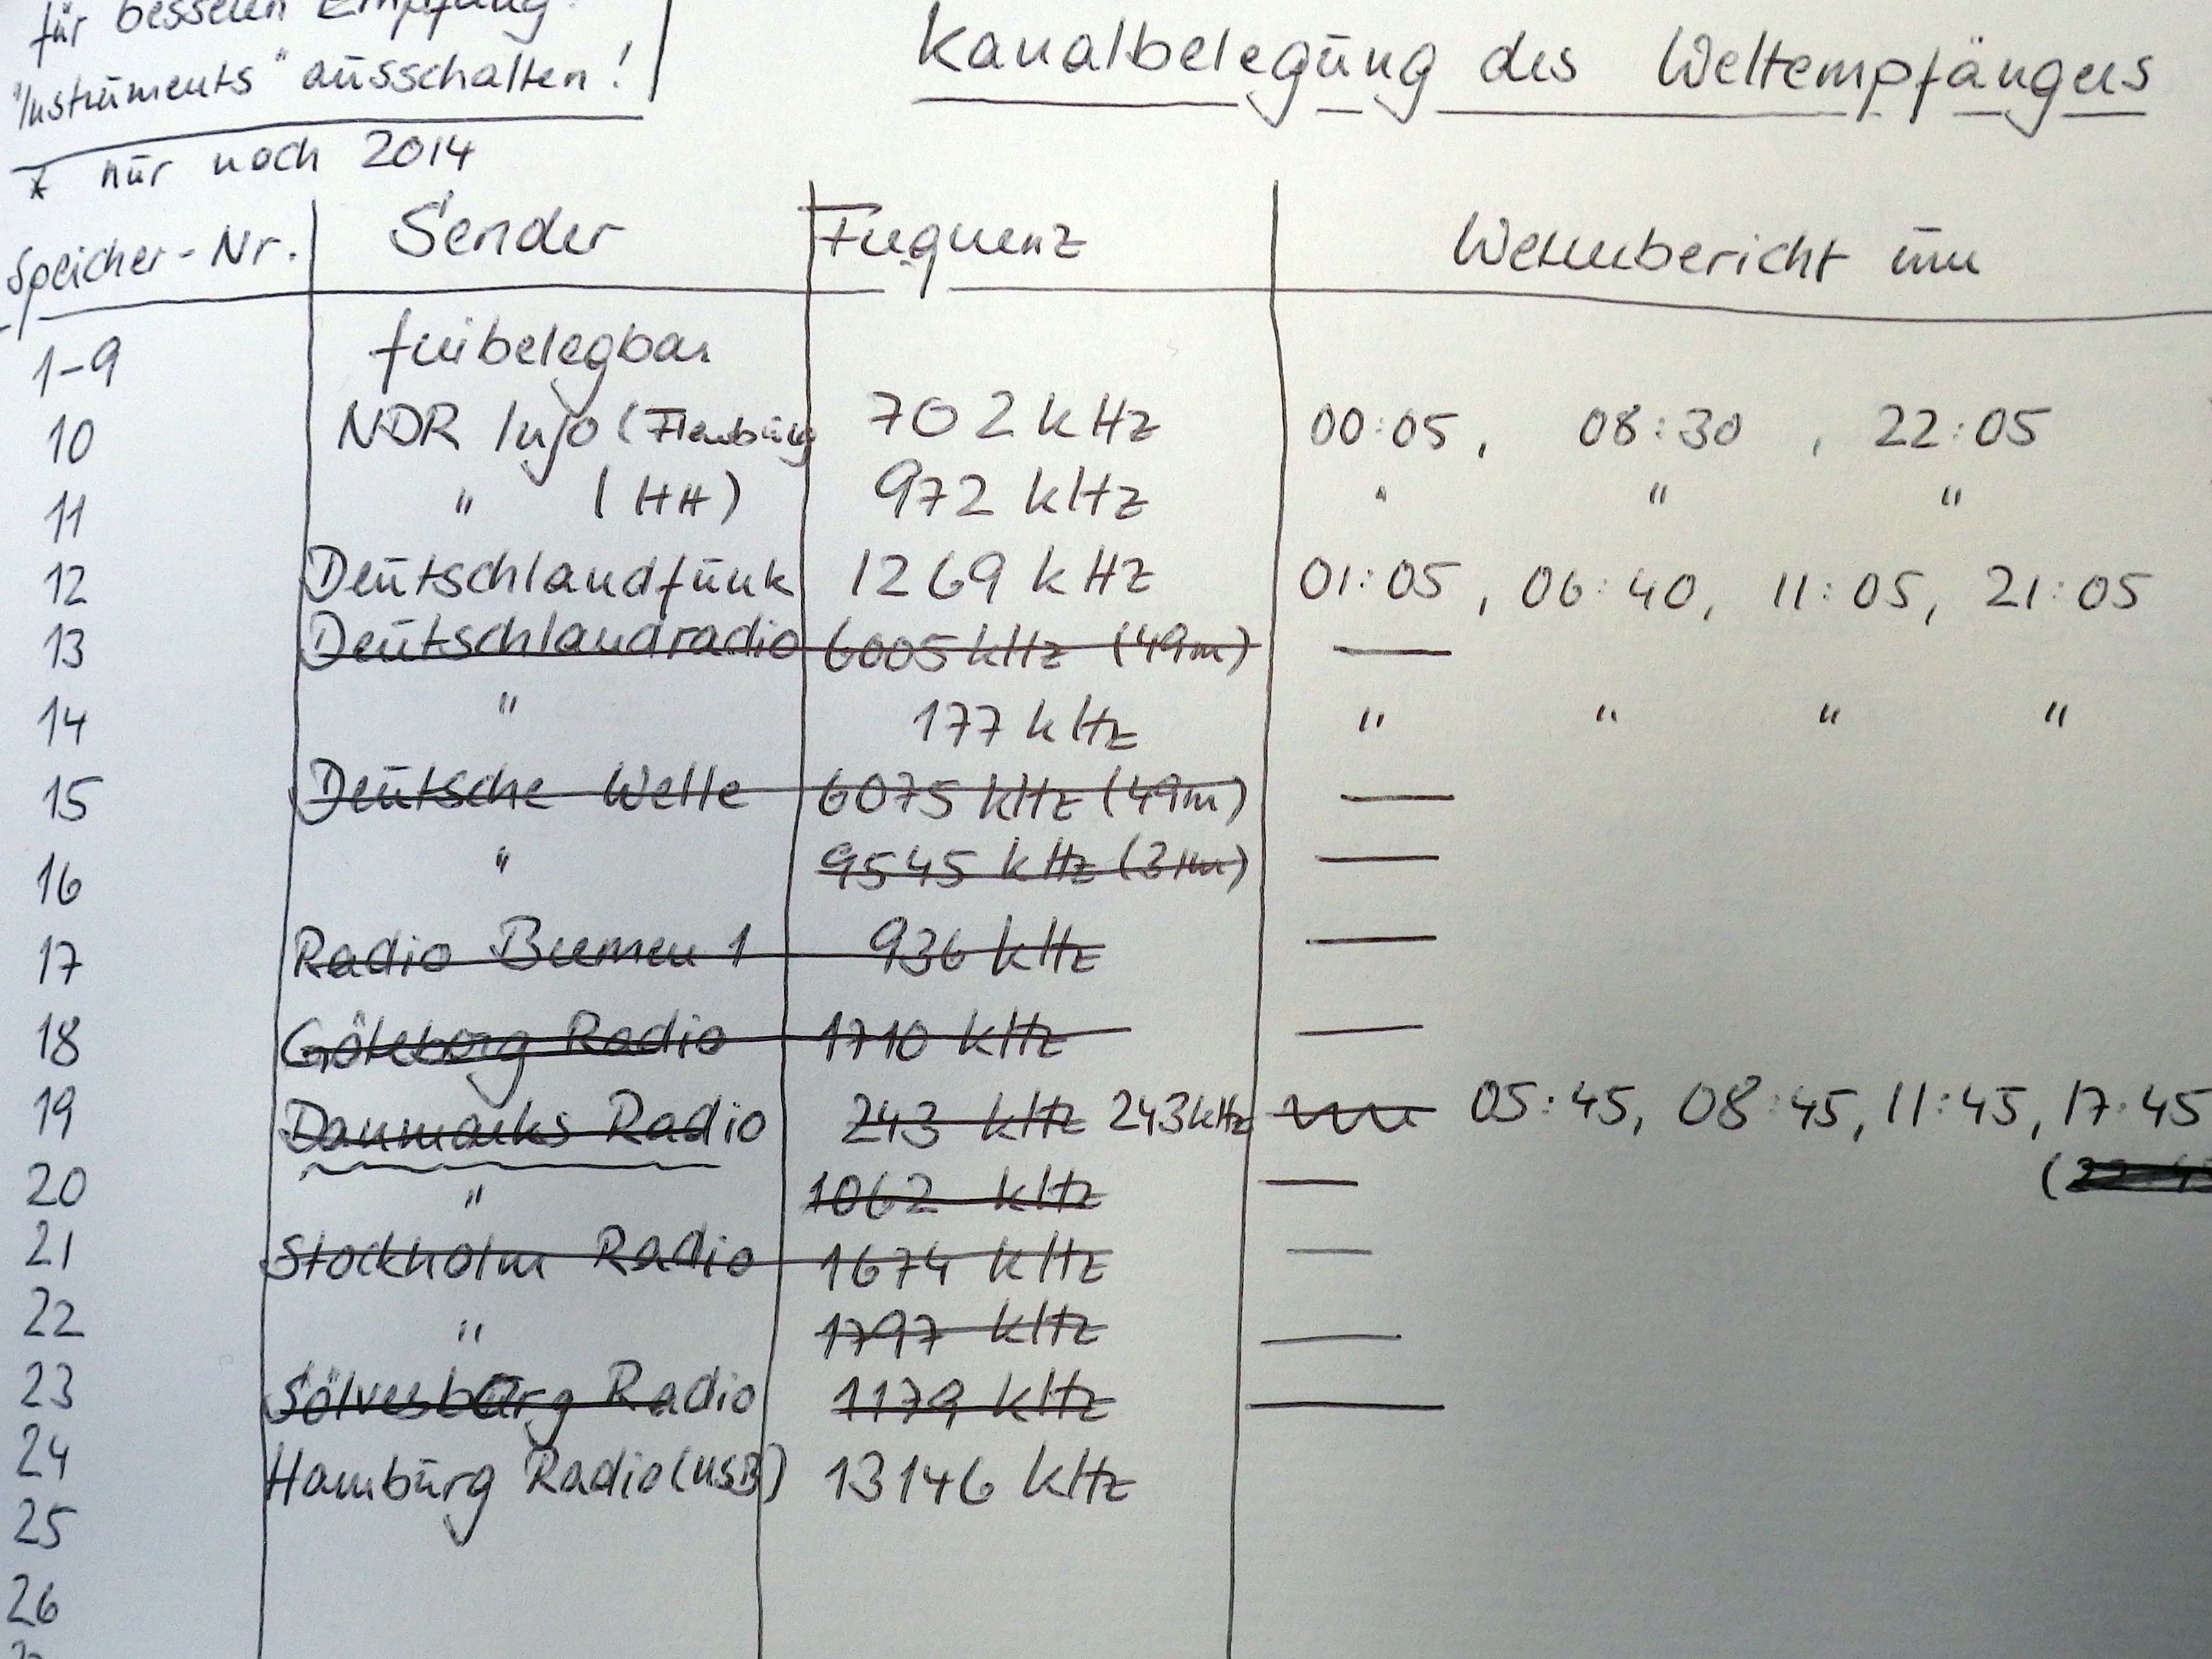 für besseren Empfang:
"Instruments" ausschalten!
* nur noch 2014
Kanalbelegung des Weltempfängers
Speicher-Nr. Sender Frequenz Wetterbericht um
1-9 freibelegbar
10 NDR Info (Flensburg 702 kHz 00:05, 08:30, 22:05
11 " (HH) 972 kHz " " "
12 Deutschlandfunk 1269 kHz 01:05, 06:40, 11:05, 21:05
13 Deutschlandradio 6005 kHz (49m) —
14 " 177 kHz " " " "
15 Deutsche Welle 6075 kHz (49m) —
16 " 9545 kHz (31m) —
17 Radio Bremen 1 936 kHz —
18 Göteborg Radio 1710 kHz —
19 Danmarks Radio 243 kHz 243kHz 05:45, 08:45, 11:45, 17:45
(22:45
20 " 1062 kHz —
21 Stockholm Radio 1674 kHz —
22 " 1797 kHz —
23 Sölvesborg Radio 1179 kHz —
24 Hamburg Radio (USB) 13146 kHz
25
26